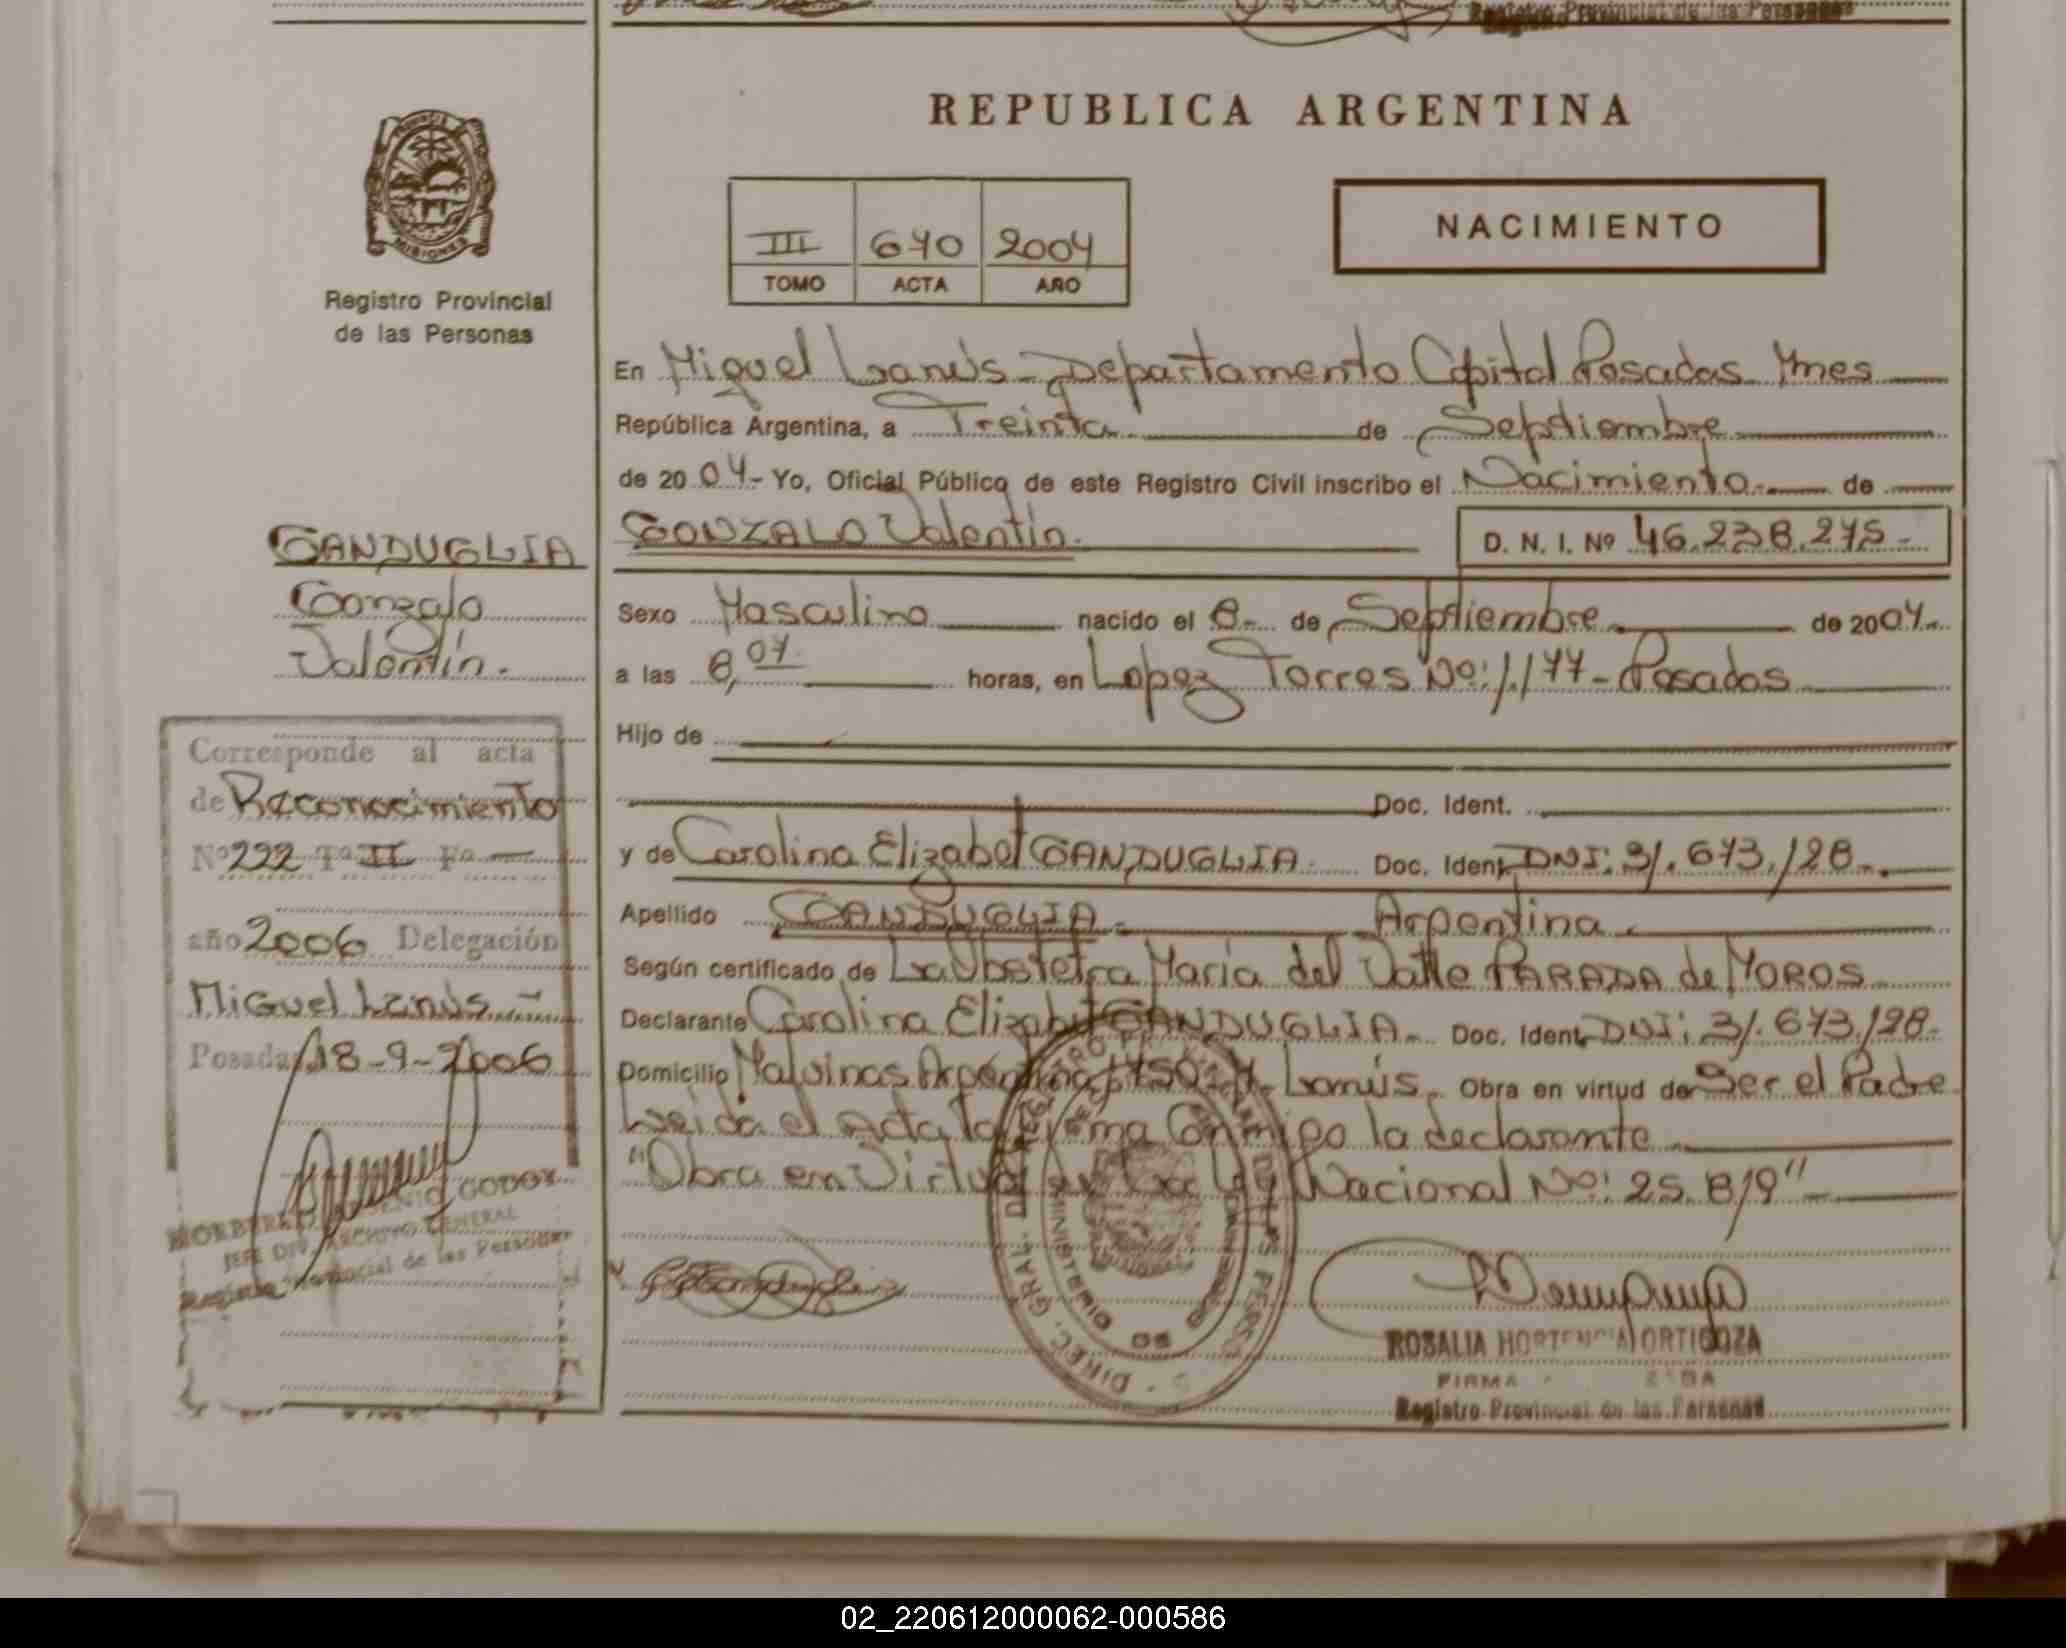 Registro Provincial de las Personas
REPUBLICA ARGENTINA
PROVINCIA
MISIONES
Registro Provincial
de las Personas
NACIMIENTO
III 670 2004
TOMO ACTA AÑO
En Miguel Lanús - Departamento Capital Posadas Mnes
República Argentina, a Treinta de Septiembre
de 20 04 - Yo, Oficial Público de este Registro Civil inscribo el Nacimiento de
GONZALO Valentín. D. N. I. Nº 46.238.275-
GANDUGLIA
Gonzalo
Valentín.
Sexo Masculino nacido el 8- de Septiembre de 2004.
a las 8,07 horas, en Lopez Torres Nº: 1.177 - Posadas
Hijo de
Doc. Ident.
y de Carolina Elizabet GANDUGLIA. Doc. Ident. DNI: 31.673.128-.
Apellido GANDUGLIA. Argentina.
Según certificado de La Obstetra María del Valle PARADA de MOROS
Declarante Carolina Elizabet GANDUGLIA. Doc. Ident. DNI: 31.673.128-
Domicilio Malvinas Argentina 1750- M. Lanús. Obra en virtud de Ser el Padre
Leida el Acta la Firma Conmigo la declarante
"Obra en Virtud de La Ley Nacional Nº: 25.819"
Corresponde al acta
de Reconocimiento
Nº 222 Tº II Fº —
año 2006 Delegación
Miguel Lanús -
Posadas, 18-9-2006
GODOY
JEFE DIV. ARCHIVO GENERAL
Registro Provincial de las Personas
ROSALIA HORTENCIA ORTIGOZA
FIRMA
Registro Provincial de las Personas
02_220612000062-000586